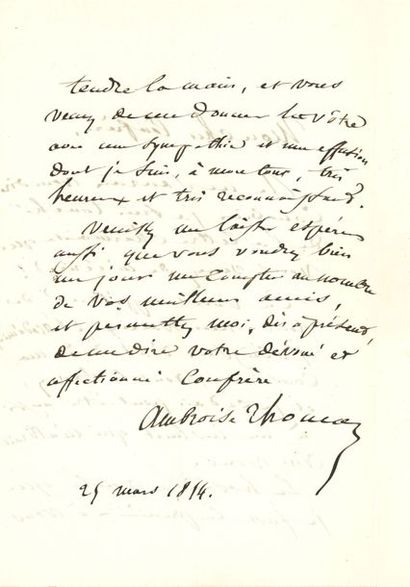 tendre la main, et vous
venez de me donner la vôtre
avec une sympathie et une effusion
dont je suis, à mon tour, très
heureux et très reconnaissant.
Veuillez me laisser espérer
aussi que vous voudrez bien
un jour me compter au nombre
de vos meilleurs amis,
et permettez moi, dès à présent,
de me dire votre dévoué et
affectionné Confrère
Ambroise Thomas
25 mars 1854.